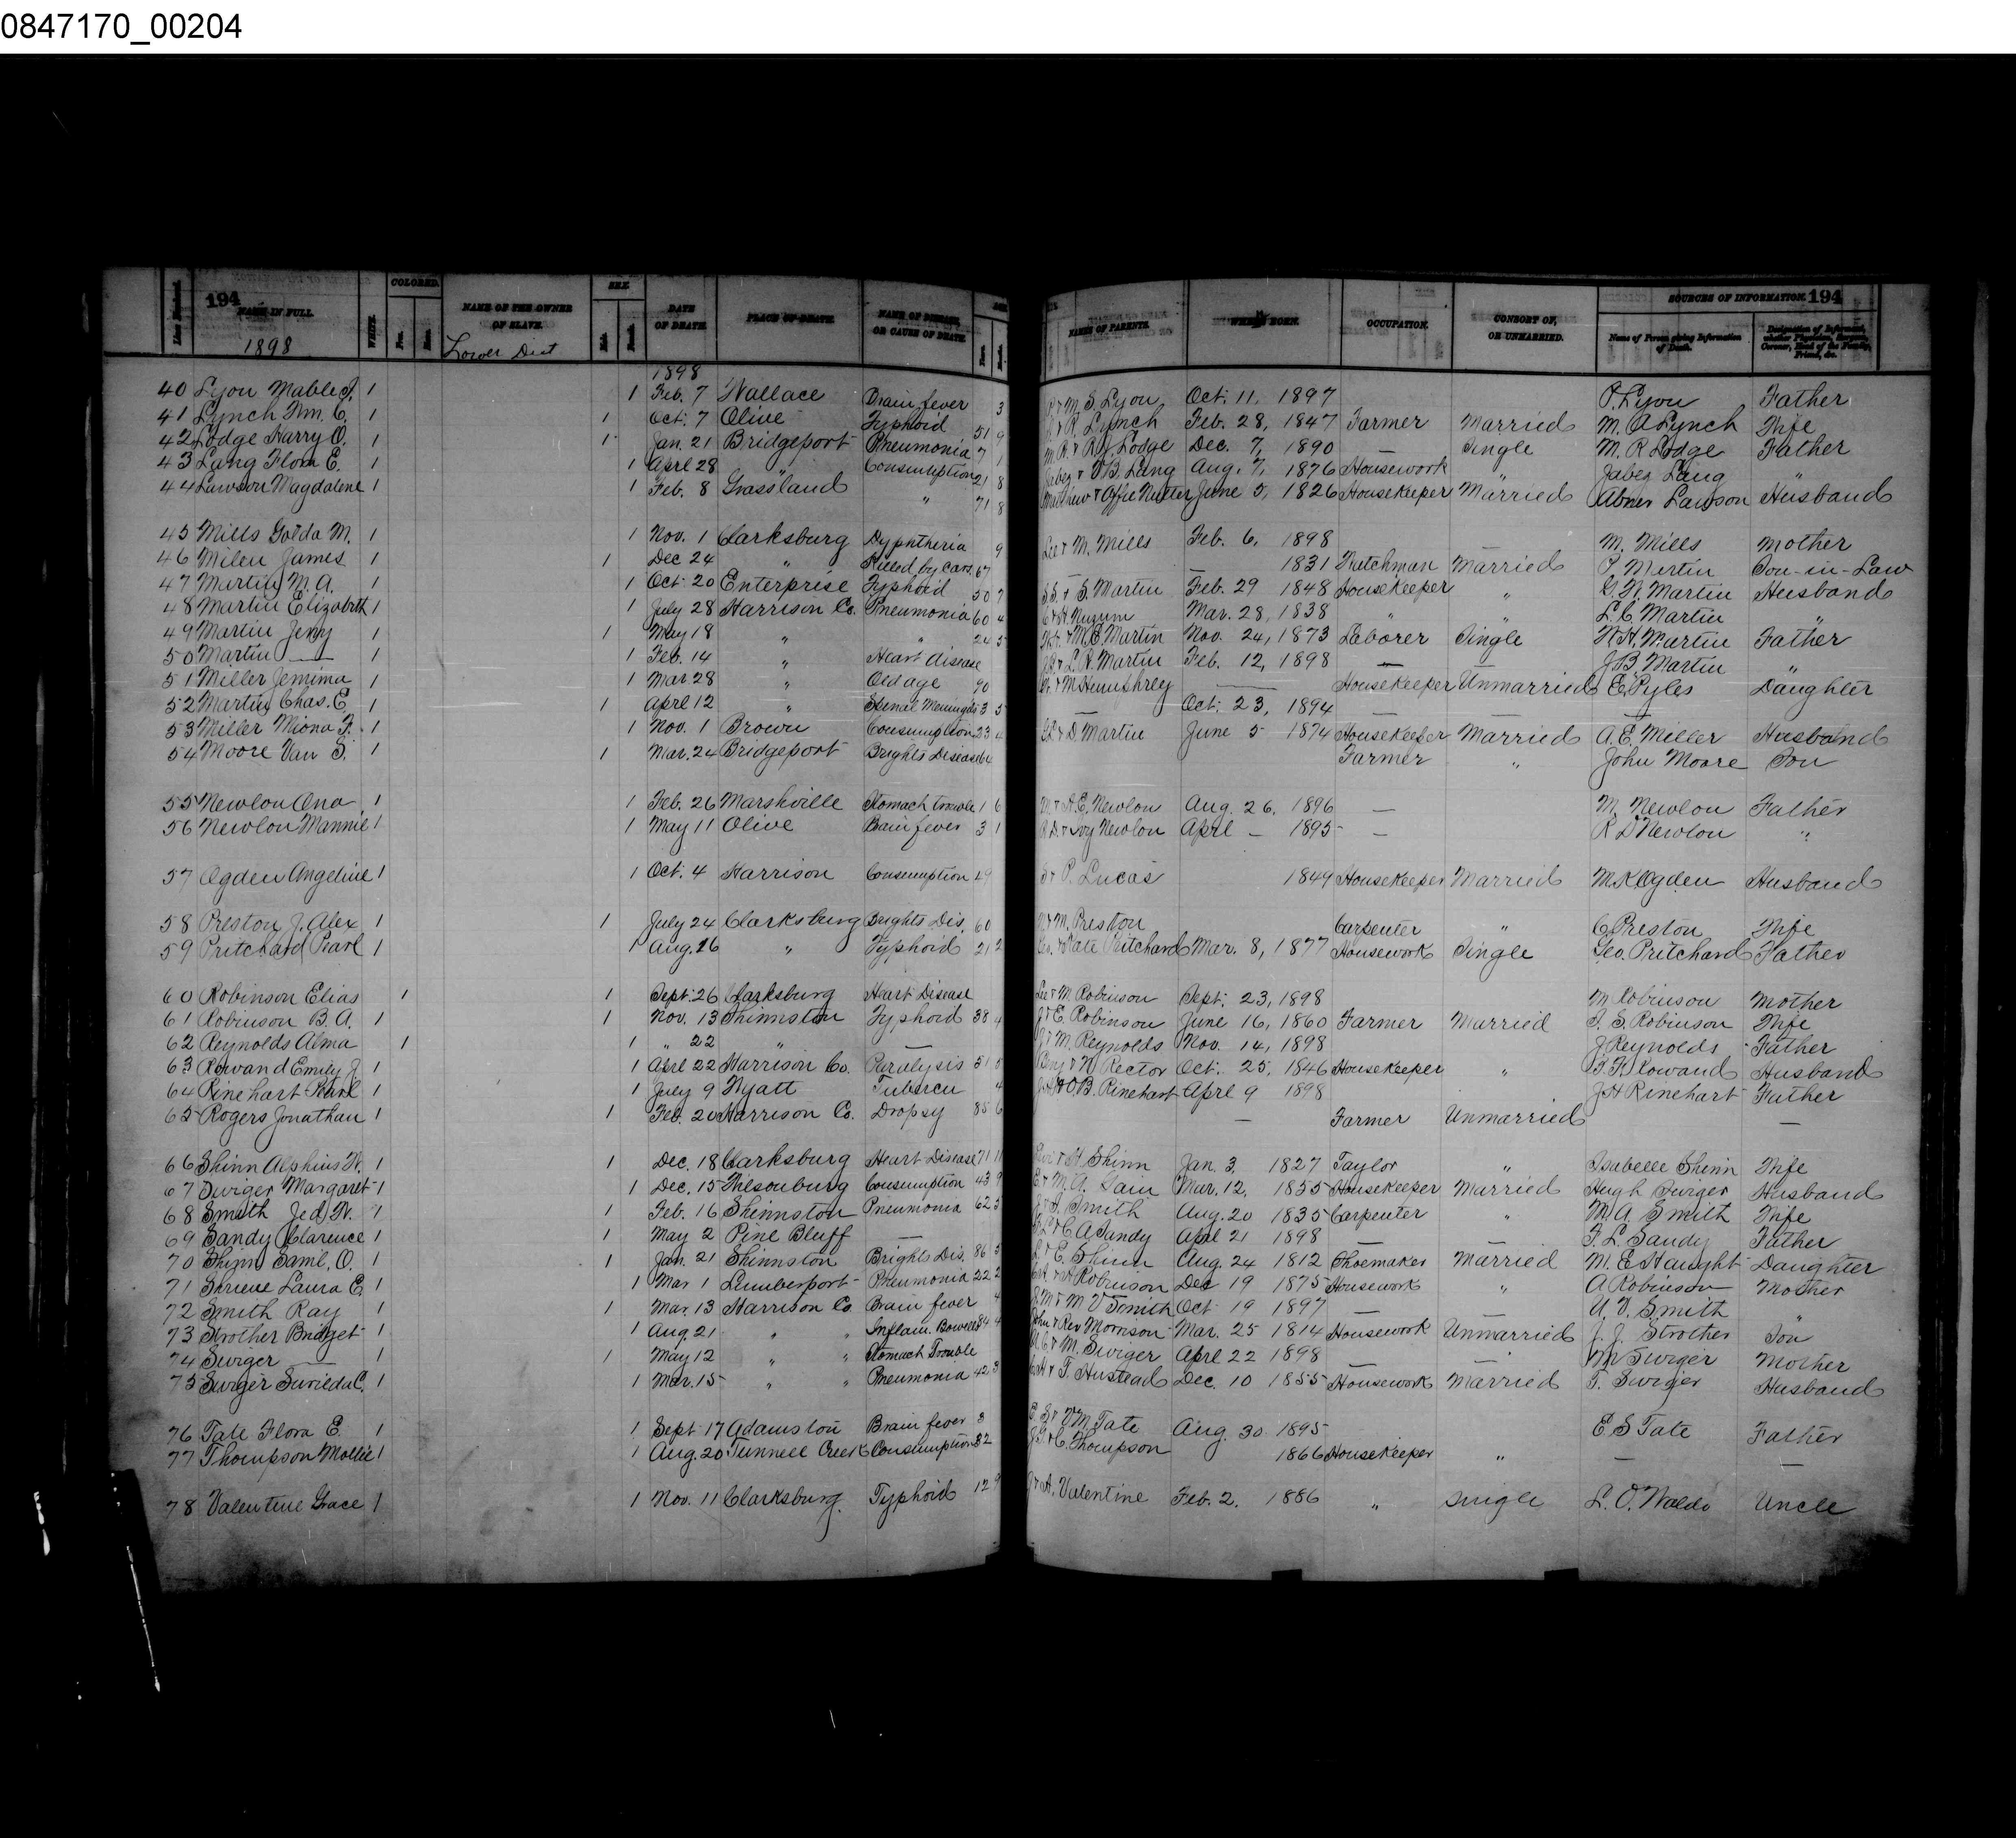 0847170_00204
194 NAME IN FULL. 1898 WHITE. COLORED. NAME OF THE OWNER OF SLAVE. Lower Dist SEX. DATE OF DEATH. PLACE OF DEATH. NAME OF DISEASE, OR CAUSE OF DEATH. NAMES OF PARENTS. WHEN BORN. OCCUPATION. CONSORT OF, OR UNMARRIED. SOURCES OF INFORMATION. 194
Name of Person giving Information of Death. Designation of Informant, whether Physician, Surgeon, Coroner, Head of the Family, Friend, &c.
1898
40 Lyon Mable J. 1 1 Feb. 7 Wallace Brain fever 3 M. S. Lyon Oct. 11, 1897 P. Lyon Father
41 Lynch Wm. C. 1 1 Oct. 7 Olive Typhoid 51 9 R. Lynch Feb. 28, 1847 Farmer Married M. A Lynch Wife
42 Lodge Harry O. 1 1 Jan. 21 Bridgeport Pneumonia 7 1 Lodge Dec. 7, 1890 Single M. R Lodge Father
43 Lang Flora E. 1 1 Aprl 28 " Consumption 21 8 Jabez & B. Lang Aug. 7, 1876 Housework Jabez Lang "
44 Lawson Magdalene 1 1 Feb. 8 Grassland " 71 8 Matthew & Offie Nutter June 5, 1826 Housekeeper Married Abner Lawson Husband
45 Mills Golda M. 1 1 Nov. 1 Clarksburg Dyphtheria 9 Lee & M. Mills Feb. 6, 1898 — M. Mills Mother
46 Milen James 1 1 Dec 24 " Killed by Cars 67 — — 1831 Watchman Married P Martin Son-in-Law
47 Martin M A. 1 1 Oct. 20 Enterprise Typhoid 50 7 S. S. & S. Martin Feb. 29 1848 Housekeeper " Martin Husband
48 Martin Elizabeth 1 1 July 28 Harrison Co. Pneumonia 60 4 Nuzum Mar. 28, 1838 " L. C. Martin "
49 Martin Jerry 1 1 May 18 " " 24 5 M. C. Martin Nov. 24, 1873 Laborer Single W. H. Martin Father
50 Martin — 1 1 Feb. 14 " Heart disease L. A. Martin Feb. 12, 1898 — J. B. Martin "
51 Miller Jemima 1 1 Mar 28 " Old age 90 & M Humphrey — Housekeeper Unmarried E. Pyles Daughter
52 Martin Chas. E. 1 1 April 12 " Spinal Meningitis 3 5 — Oct. 23, 1894 — —
53 Miller Miona F. 1 1 Nov. 1 Brown Consumption 23 4 & D Martin June 5 1874 Housekeeper Married A. E. Miller Husband
54 Moore Van S. 1 1 Mar. 24 Bridgeport Brights Disease 64 Farmer " John Moore Son
55 Newlon Ona 1 1 Feb. 26 Marshville Stomach trouble 1 6 M & A E. Newlon Aug. 26, 1896 — M. Newlon Father
56 Newlon Mannie 1 1 May 11 Olive Brain fever 3 1 R D & Ivy Newlon Aprl — 1895 — R D Newlon "
57 Ogden Angeline 1 1 Oct. 4 Harrison Consumption 49 P. Lucas 1849 Housekeeper Married M K Ogden Husband
58 Preston J. Alex 1 1 July 24 Clarksburg Brights Dis. 60 & M. Preston Carpenter " C. Preston Wife
59 Pritchard Pearl 1 1 Aug. 26 " Typhoid 21 2 Geo. & Kate Pritchard Mar. 8, 1877 Housework Single Geo. Pritchard Father
60 Robinson Elias 1 1 Sept. 26 Clarksburg Heart Disease Lee & M Robinson Sept. 23, 1898 M Robinson Mother
61 Robinson B. A. 1 1 Nov. 13 Shinnston Typhoid 38 4 J & E. Robinson June 16, 1860 Farmer Married S. Robinson Wife
62 Reynolds Alma 1 1 " 22 " — J & M. Reynolds Nov. 14, 1898 J Reynolds Father
63 Rowand Emily J 1 1 Aprl 22 Harrison Co. Paralysis 51 5 Benj & N Rector Oct. 25, 1846 Housekeeper " F. Rowand Husband
64 Rinehart Pearl 1 1 July 9 Wyatt Tubercu 4 O. B. Rinehart Aprl 9 1898 J H Rinehart Father
65 Rogers Jonathan 1 1 Feb. 20 Harrison Co. Dropsy 85 6 — Farmer Unmarried —
66 Shinn Alphius W. 1 1 Dec. 18 Clarksburg Heart Disease 71 11 & H. Shinn Jan. 3, 1827 Taylor " Isabelle Shinn Wife
67 Swiger Margaret 1 1 Dec. 15 Wilsonburg Consumption 43 9 & M. A. Gain Mar. 12, 1855 Housekeeper Married Hugh Swiger Husband
68 Smith Jed W. 1 1 Feb. 16 Shinnston Pneumonia 62 5 Smith Aug. 20 1835 Carpenter " M. A Smith Wife
69 Sandy Clarence 1 1 May 2 Pine Bluff — & C A Sandy Aprl 21 1898 — F. L. Sandy Father
70 Shinn Saml. O. 1 1 Jan. 21 Shinnston Brights Dis. 86 5 & E. Shinn Aug. 24 1812 Shoemaker Married M. E Haught Daughter
71 Shreve Laura E. 1 1 Mar 1 Lumberport Pneumonia 22 2 Robinson Dec 19 1875 Housework " A Robinson Mother
72 Smith Ray 1 1 Mar. 13 Harrison Co. Brain fever 4 & M V Smith Oct 19 1897 — U. V. Smith "
73 Strother Bridget 1 1 Aug 21 " " Inflam. Bowels 84 4 John & Rev Morrison Mar. 25 1814 Housework Unmarried J. J. Strother Son
74 Swiger — 1 1 May 12 " " Stomach Trouble & M. Swiger Aprl 22 1898 — M Swiger Mother
75 Swiger Surilda C. 1 1 Mar. 15 " " Pneumonia 42 3 & T. Hustead Dec. 10 1855 Housework Married T. Swiger Husband
76 Tate Flora E. 1 1 Sept 17 Adamston Brain fever 3 E. S & V M Tate Aug. 30 1895 E S Tate Father
77 Thompson Mollie 1 1 Aug. 20 Tunnell Creek Consumption 32 & C. Thompson 1866 Housekeeper " — —
78 Valentine Grace 1 1 Nov. 11 Clarksburg Typhoid 12 9 & A. Valentine Feb. 2. 1886 " Single L. O. Waldo Uncle